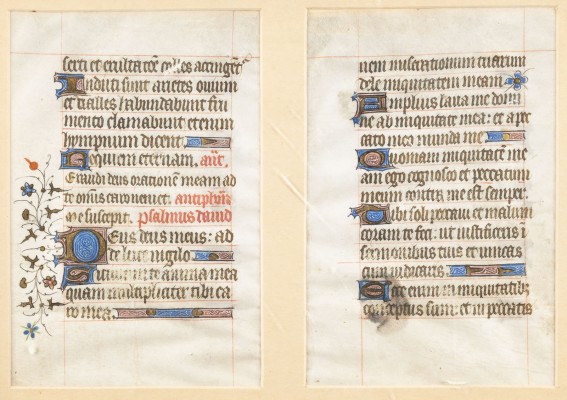 serti et exultatōe colles accingēt
Induti sunt arietes ovium
et valles habundabunt fru
mento clamabunt etenim
hympnum dicent
Requiem eternam. aūt.
Exaudi deus orationē meam ad
te omīs caro veniet. antiphōna
me suscepit. psalmus david
Deus deus meus: ad
te de luce vigilo
Sitivit in te anima mea
quam multipliciter tibi ca
ro mea.
nem miserationum tuarum
dele iniquitatem meam
Amplius lava me domi
ne ab iniquitate mea: et a pec
cato meo munda me
Quoniam iniquitatē me
am ego cognosco et peccatum
meum contra me est semper.
Tibi soli peccavi et malum
coram te feci: ut iustificeris ī
sermonibus tuis et vincas
cum iudicaris
Ecce enim in iniquitatibꝫ
conceptus sum: et in peccatis